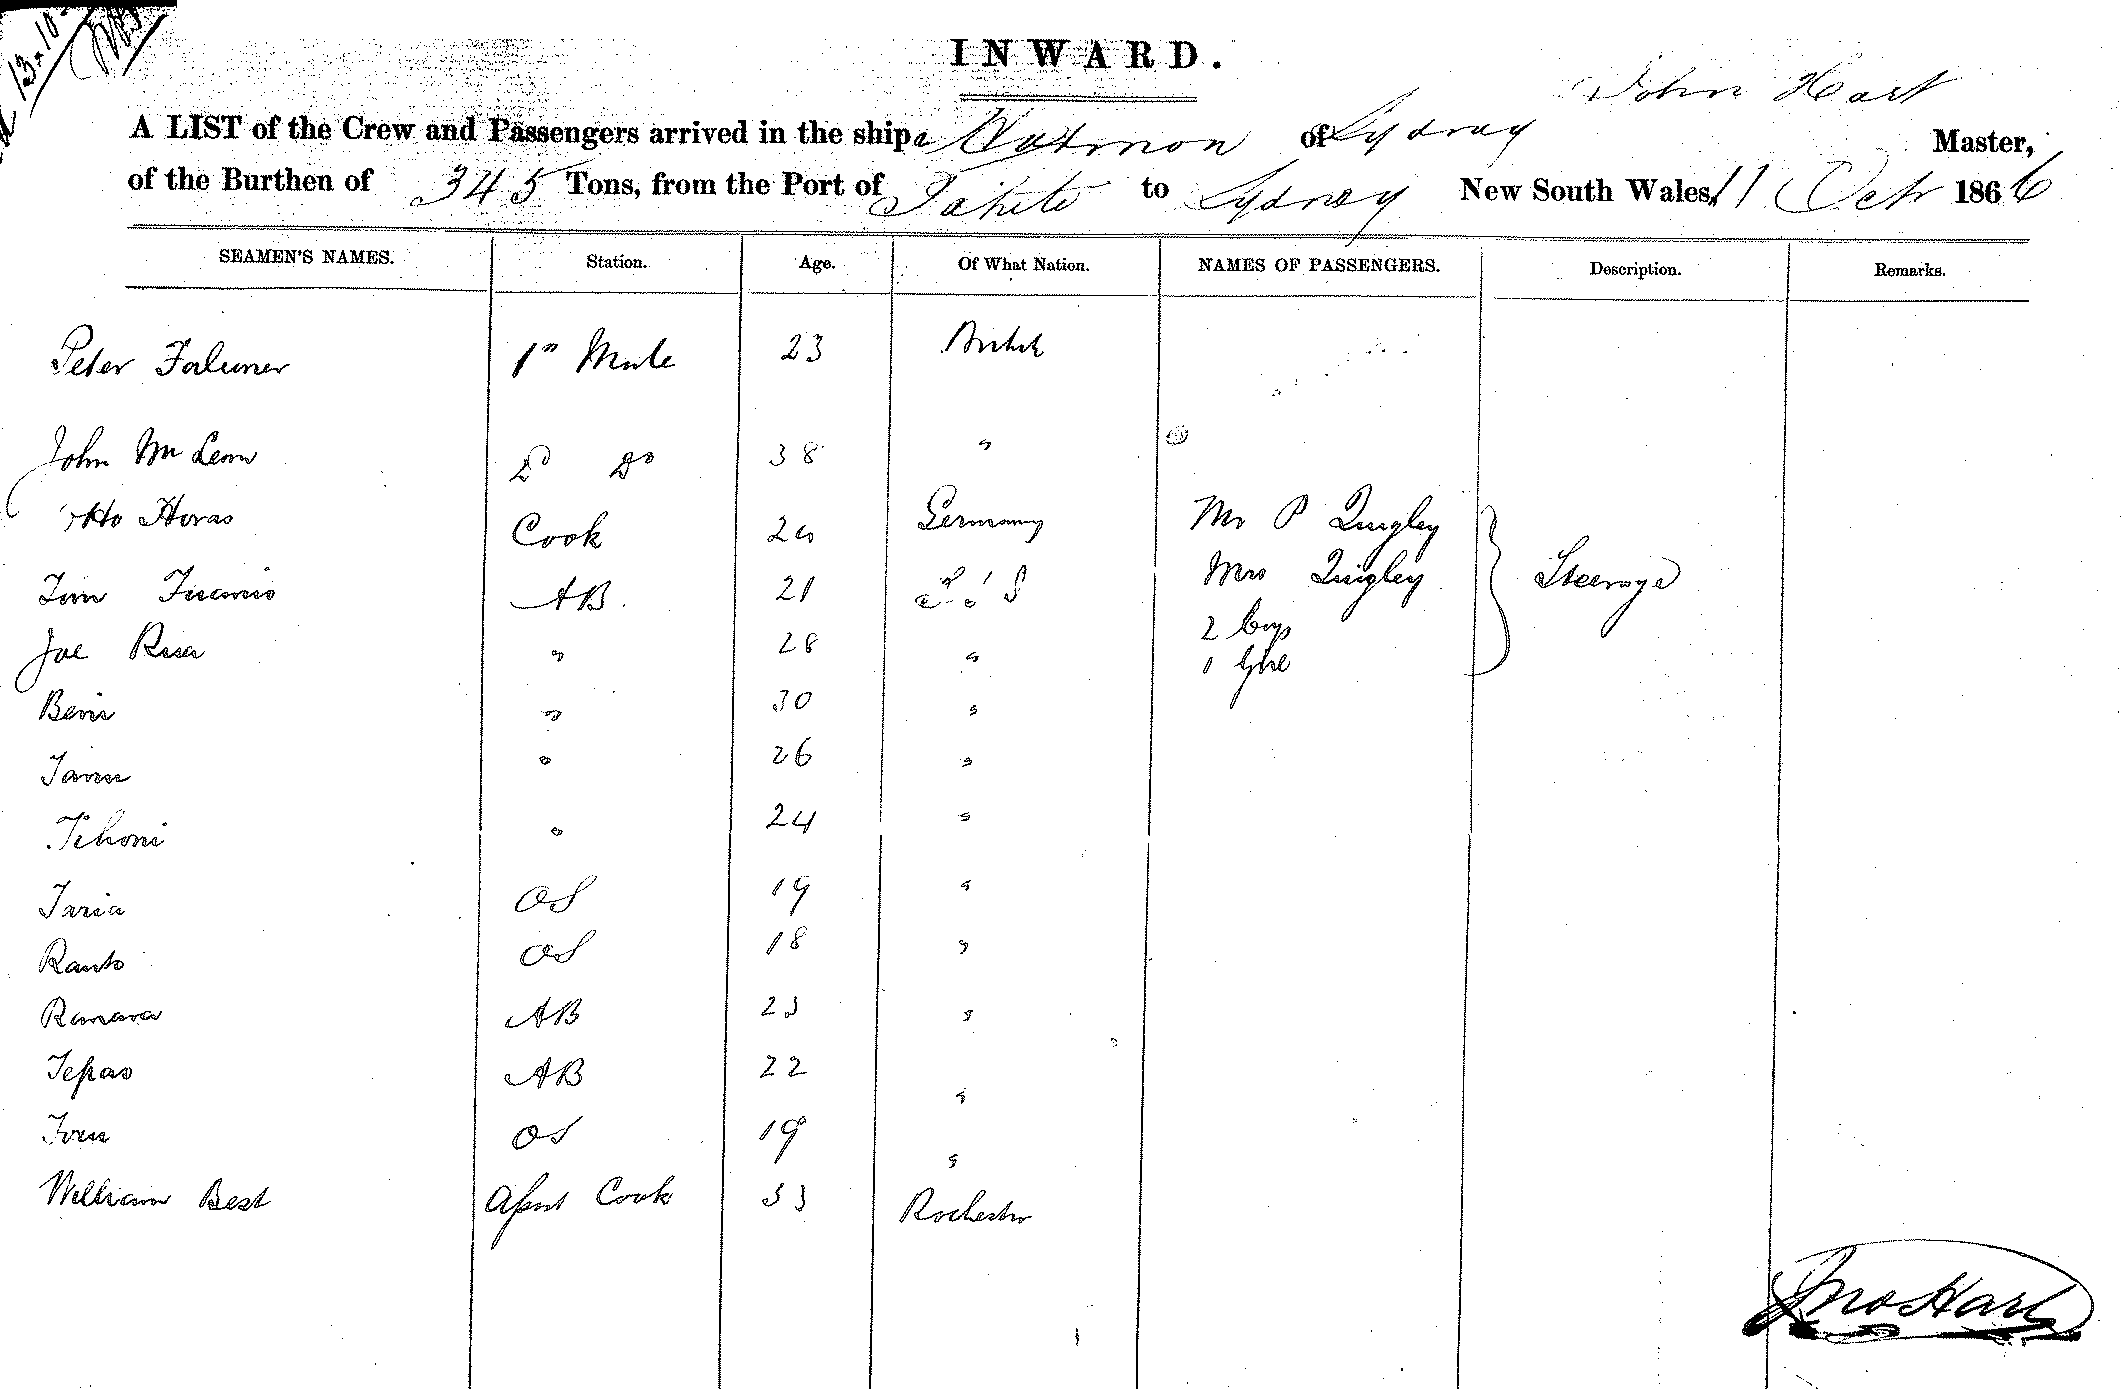 13-10-
INWARD.
John Hart
A LIST of the Crew and Passengers arrived in the ship of Sydney Master,
of the Burthen of 345 Tons, from the Port of Tahiti to Sydney New South Wales, 11 Octr 1866
SEAMEN'S NAMES. Station. Age. Of What Nation. NAMES OF PASSENGERS. Description. Remarks.
Peter Falconer 1st Mate 23 British
John McLean Do Do 38 "
Cook Germany Mr P Quigley
Tom AB. 21 Mrs Quigley Steerage
Joe Rosa " 28 " 2 boys
1 Girl
" 30 "
" 26 "
Tehoni " 24 "
Taria OS 19 "
OS 18 "
AB 23 "
Tepao AB 22 "
OS 19 "
William Best Cook 33 Rochester
Jno Hart